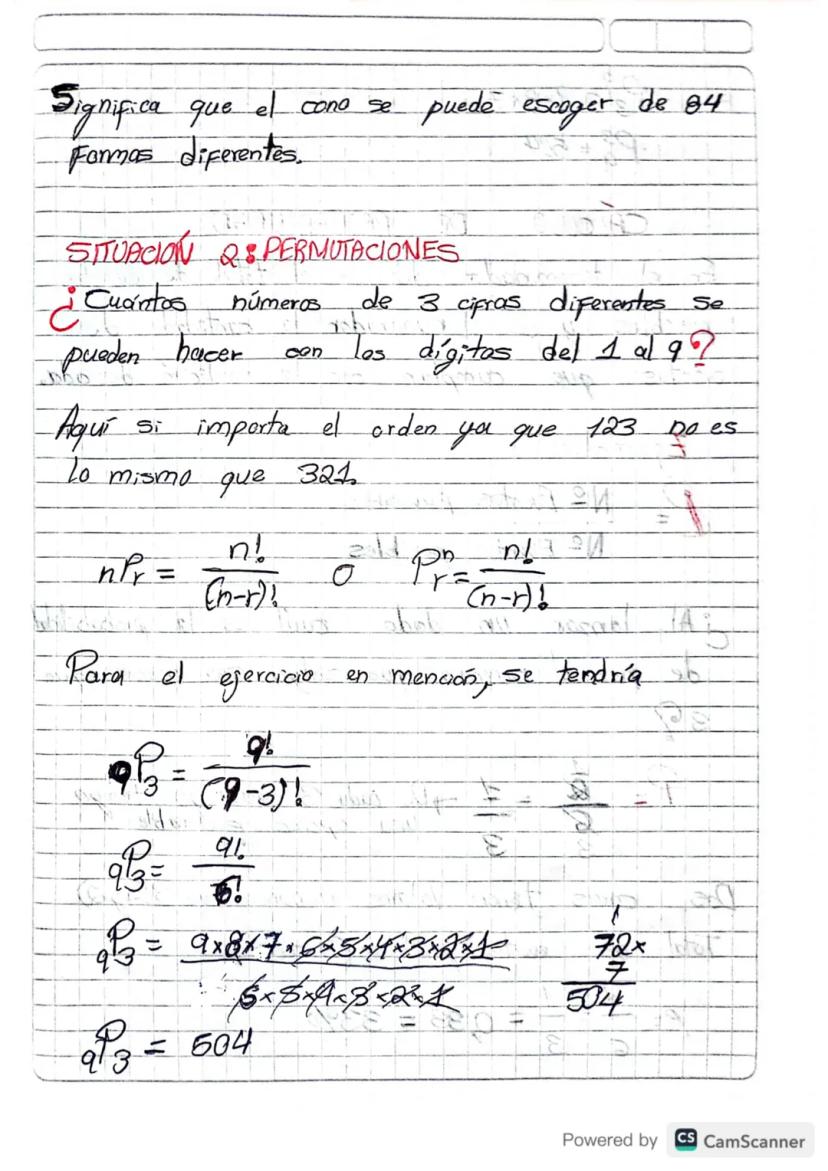 Significa que el cono se puede escoger de 84
Formas diferentes.
SITUACIÓN 2: PERMUTACIONES
¿Cuántos números de 3 cifras diferentes se
pueden hacer con los dígitos del 1 al 9?
Aquí si importa el orden ya que 123 no es
lo mismo que 321.
nPr = n! / (n-r)! o Prn = n! / (n-r)!
Para el ejercicio en mención, se tendría
9P3 = 9! / (9-3)!
9P3 = 9! / 6!
9P3 = 9x8x7x6x5x4x3x2x1 / 6x5x4x3x2x1
1
72x
7
504
9P3 = 504
Powered by CS CamScanner